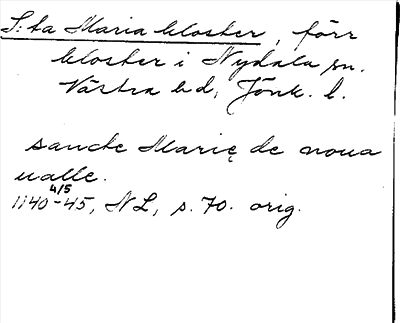 S:ta Maria kloster, förr
kloster i Nydala sn.
Västra hd, Jönk. l.
sancte Marię de noua
ualle.
4/5
1140-45, NL, s. 70. orig.